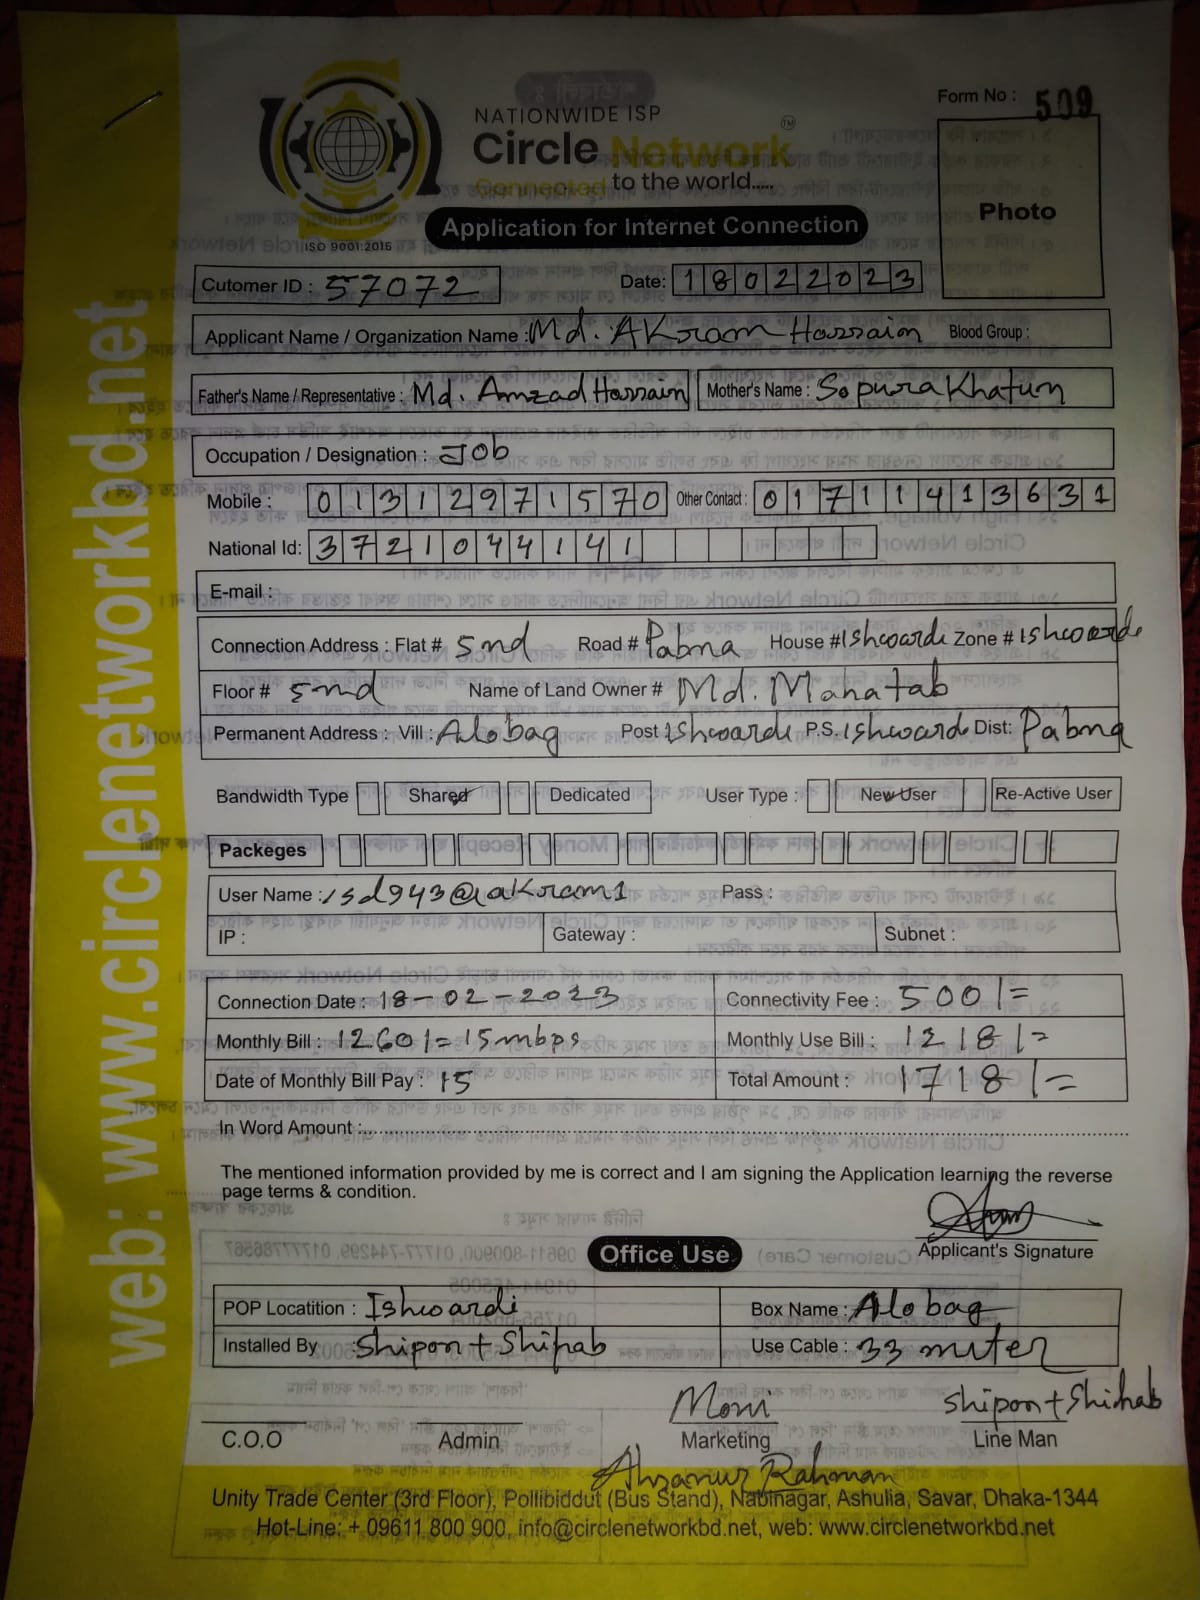 Form No : 509
NATIONWIDE ISP
Circle Network TM
Connected to the world.....
ISO 9001:2015
Photo
Application for Internet Connection
Cutomer ID : 57072 Date: 18022023
Applicant Name / Organization Name : Md. Akram Hossain Blood Group :
Father's Name / Representative : Md. Amzad Hossain Mother's Name : Sopura Khatun
Occupation / Designation : Job
Mobile : 01312971570 Other Contact : 01711413631
National Id: 3721044141
E-mail :
Connection Address : Flat # 5nd Road # Pabna House # Ishwardi Zone # Ishwardi
Floor # 5nd Name of Land Owner # Md. Mahatab
Permanent Address : Vill : Alobag Post Ishwardi P.S. Ishwardi Dist: Pabna
Bandwidth Type Shared Dedicated User Type : New User Re-Active User
Packeges
User Name : isd943@akram1 Pass :
IP : Gateway : Subnet :
Connection Date : 18-02-2023 Connectivity Fee : 500/=
Monthly Bill : 1260/= 15mbps Monthly Use Bill : 1218/=
Date of Monthly Bill Pay : 15 Total Amount : 1718/=
In Word Amount :
The mentioned information provided by me is correct and I am signing the Application learning the reverse
page terms & condition.
Applicant's Signature
Office Use
POP Locatition : Ishwardi Box Name : Alobag
Installed By : Shipon + Shihab Use Cable : 33 muter
Moni Shipon + Shihab
C.O.O Admin Marketing Line Man
Ahsanur Rahman
Unity Trade Center (3rd Floor), Pollibiddut (Bus Stand), Nabinagar, Ashulia, Savar, Dhaka-1344
Hot-Line: + 09611 800 900, info@circlenetworkbd.net, web: www.circlenetworkbd.net
web: www.circlenetworkbd.net